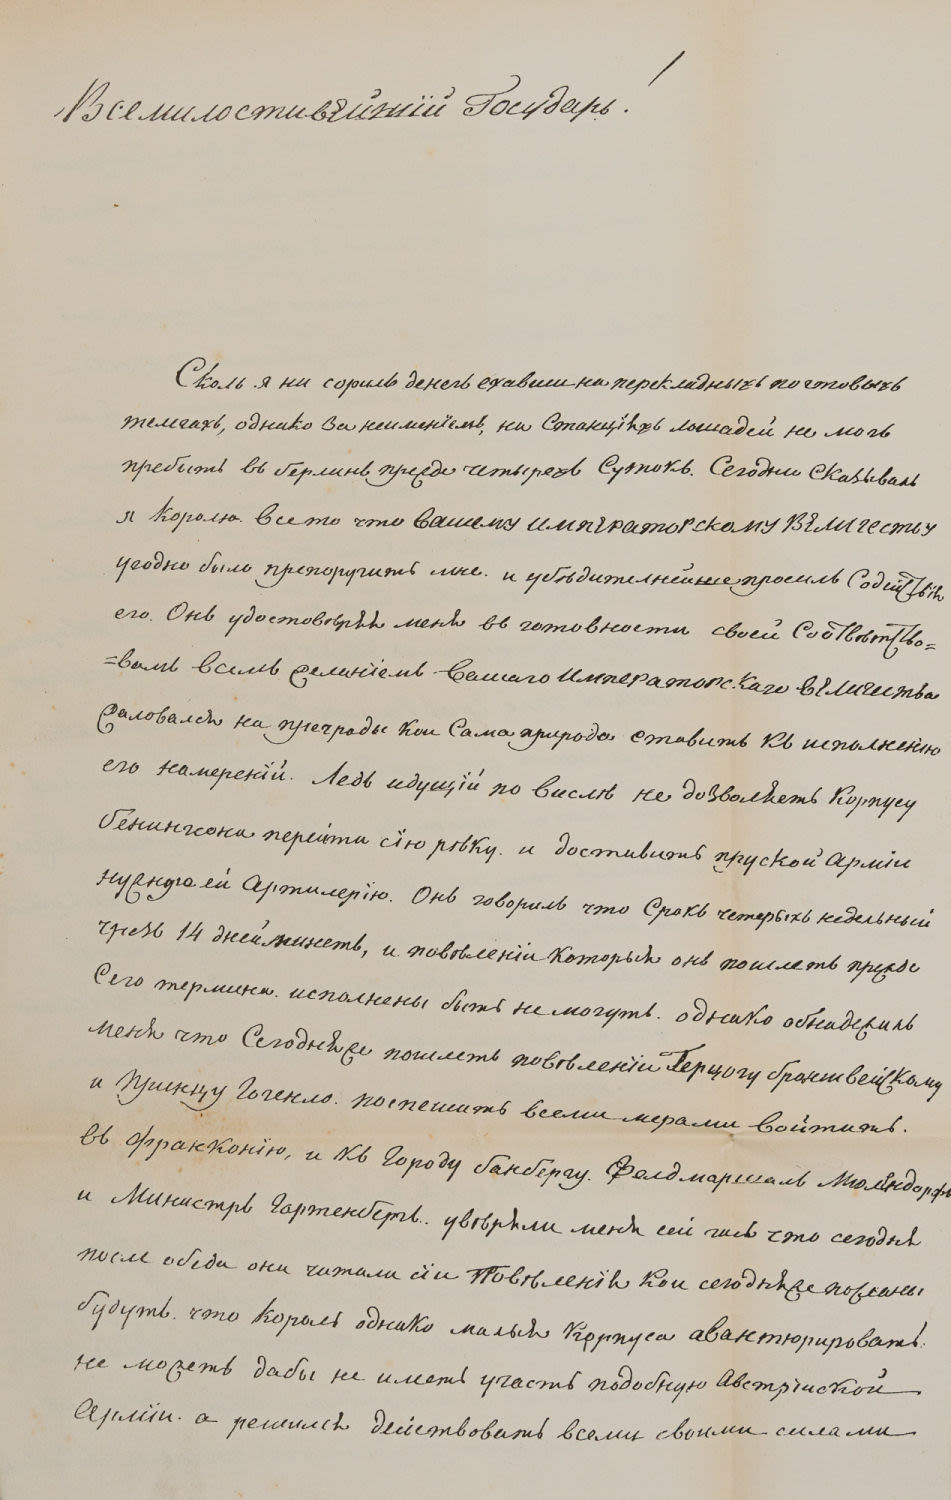 Всемилостивѣйшій Государь!
Сколь я ни сорилъ денегъ ехавши на перекладныхъ почтовыхъ
телегахъ, однако за неименіемъ, на Станціяхъ лошадей не могъ
прибыть въ берлинъ прежде четырехъ Сутокъ. Сегодни Сказывалъ
я Королю. все то что Вашему императорскому Величеству
угодно было препоручить мне. и убѣдителнейше просилъ Содействія
его. Онъ удостовѣрял меня въ готовности своей Соотвѣтство=
=вать всемъ желаніемъ Вашего императорскаго величества
жаловался на преграды кои Сама природа ставитъ къ исполненію
его намереній. Ледъ идущій по вислѣ не дозволяетъ Корпусу
бенингсона перейти сію рѣку. и доставить пруской Арміи
нужную ей Артилерію. Онъ говорилъ что Срокъ четырехъ недельный
чрезъ 14 дней минетъ, и повѣленіи которыя онъ пошлетъ прежде
Сего термина. исполнены быть не могутъ. однако обнадежилъ
меня что Сегодня же пошлетъ повѣленіи Герцогу браншвейскому
и Принцу Гогенло. поспешить всеми мерами войтить.
въ Франконію, и къ Городу банбергу. Фелдмаршалъ Мюлендорфъ
и Министръ Гартенбергъ. увѣряли меня сей часъ что сегодня
после обеда они читали сіи Повѣленія кои сегодня же посланы
будутъ. что король однако малыя Корпуса авантюрировать.
не можетъ дабы не иметь участь подобную Австрійской
Арміи. а решился действовать всеми своими силами